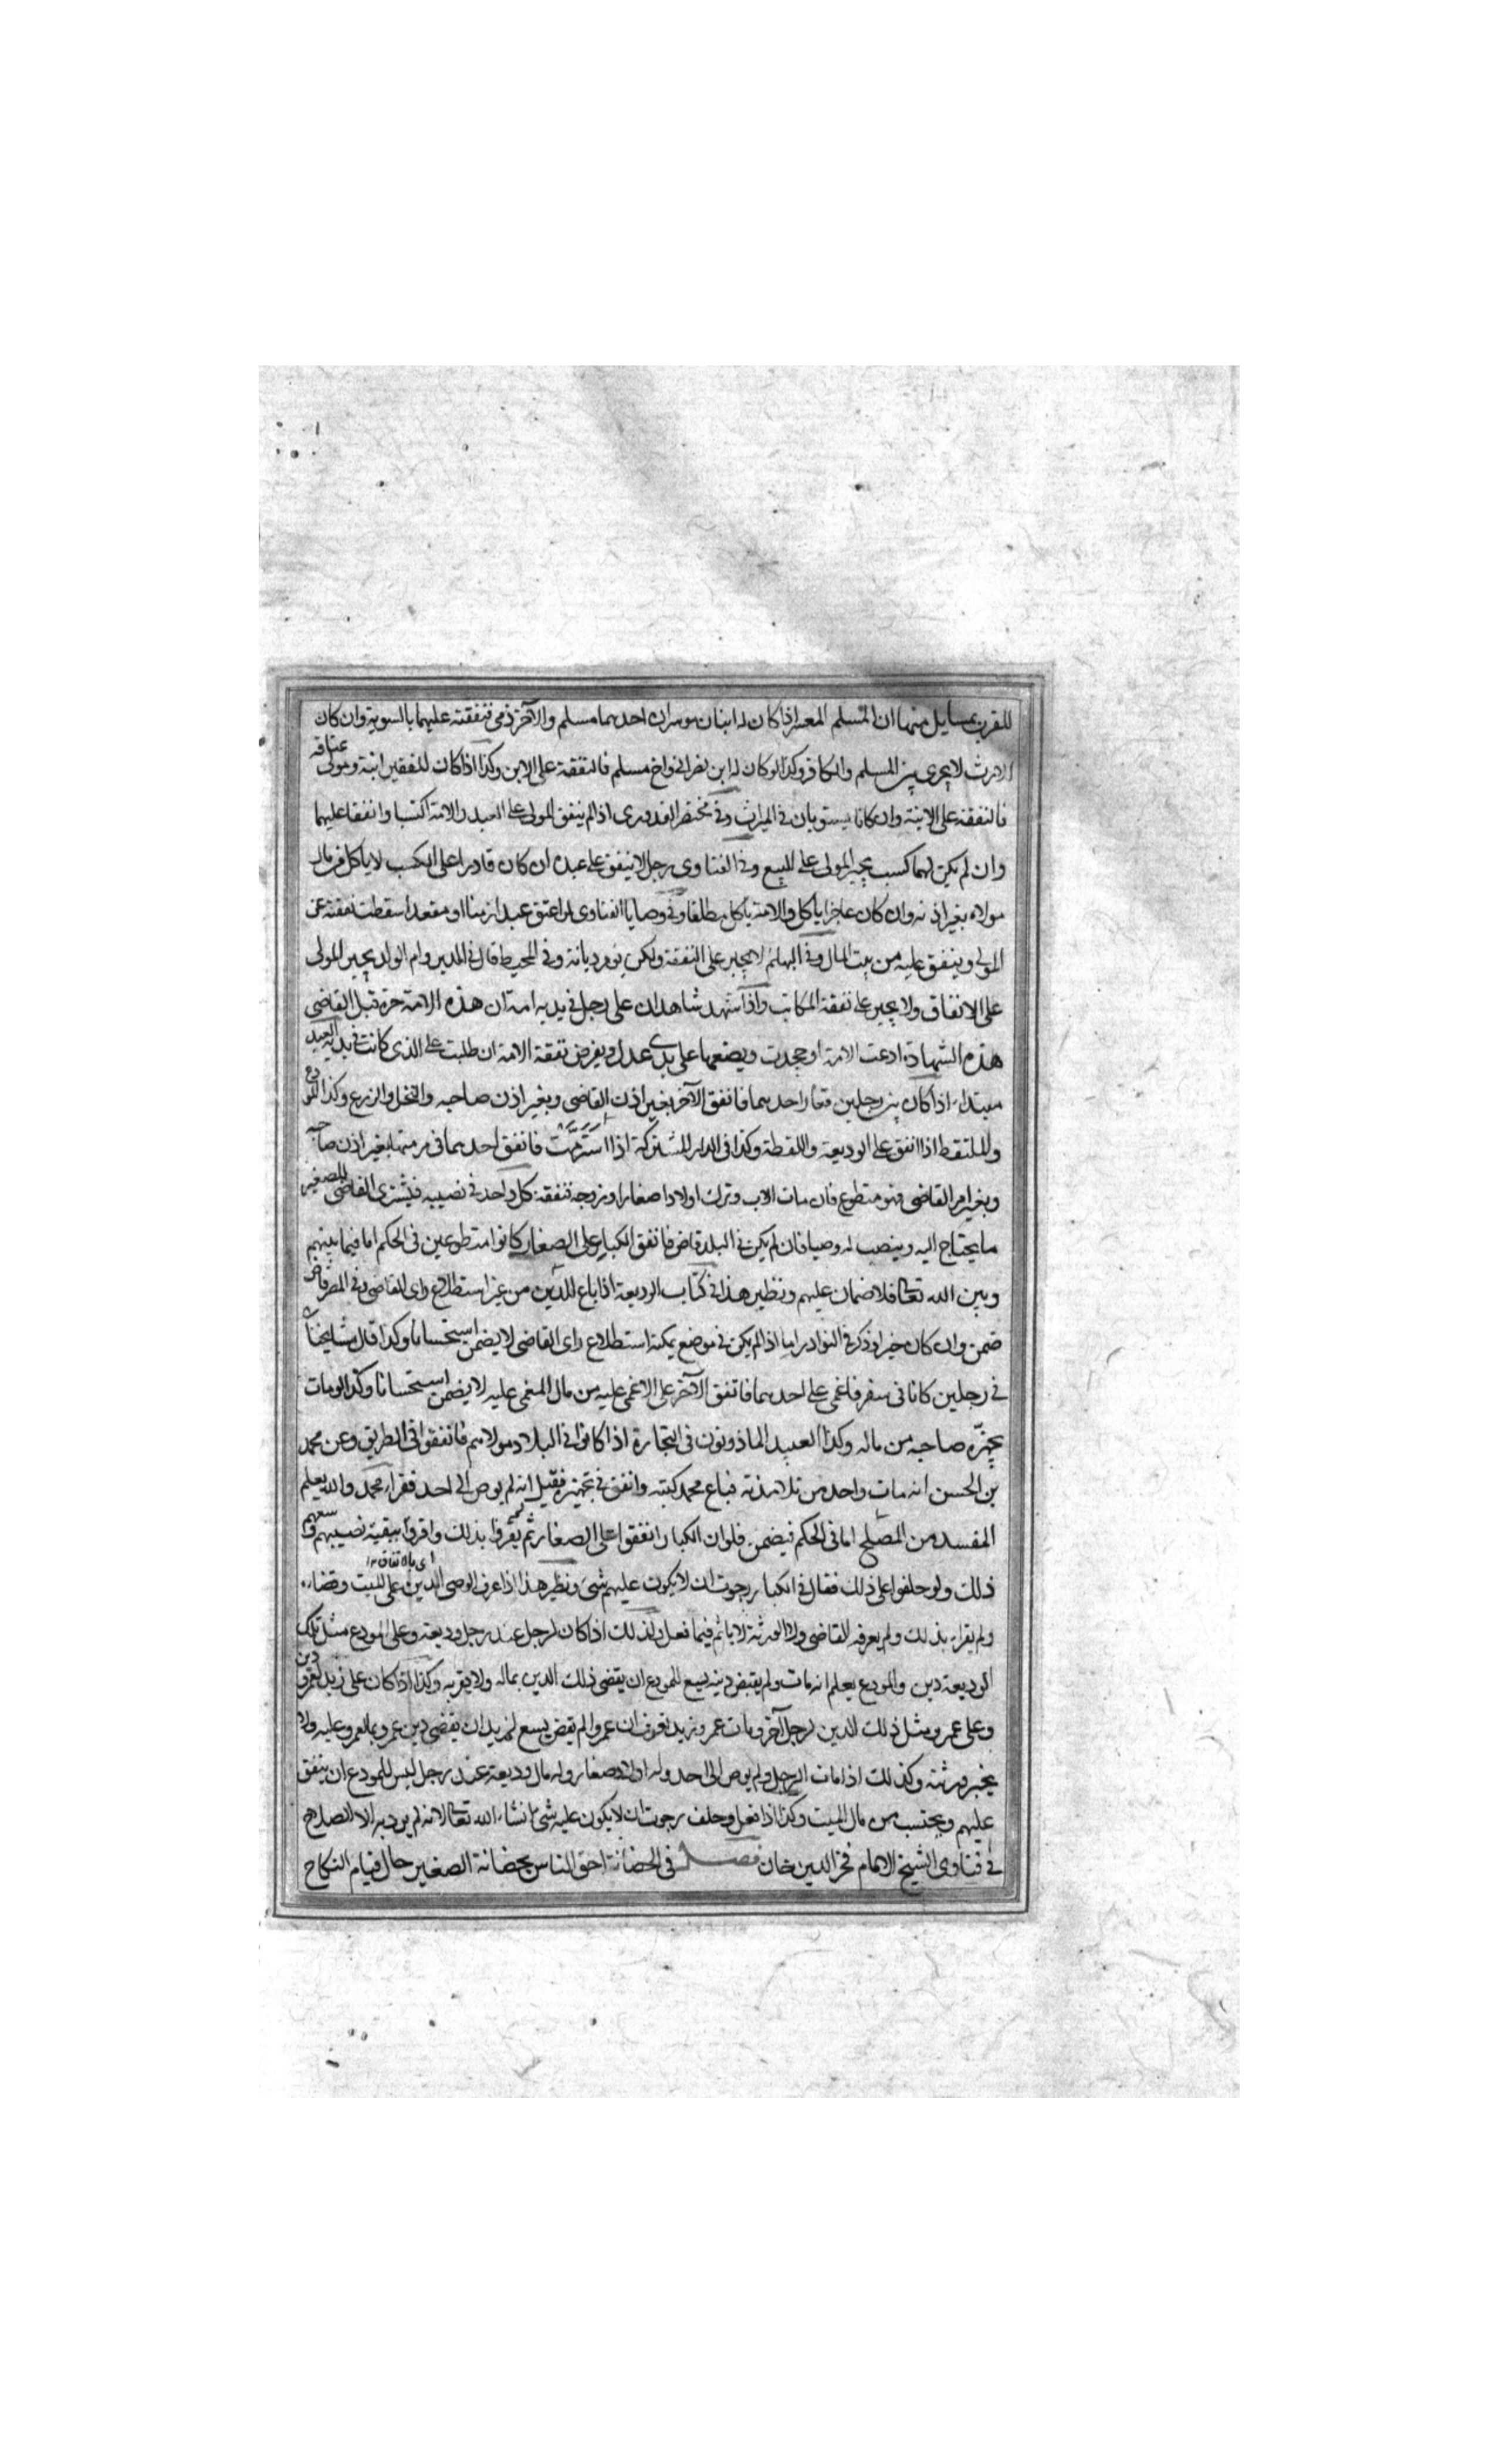 للقرب بمسايل منها ان المسلم المعسر اذا كان له ابنان موسران احدهما مسلم والآخر ذمي فنفقته عليهما بالسوية وان كان
الارث لا يجري بين المسلم والكافر وكذا لو كان له ابن نصراني واخ مسلم فالنفقة على الابن وكذا اذا كان للفقير ابنة ومولى عتاقه
فالنفقة على الابنة وان كانا يستويان في الميراث وفي مختصر القدوري اذا لم ينفق المولى على العبد والامة اكتسبا وانفقا عليهما
وان لم يكن لهما كسب يجبر المولى على البيع وفي الفتاوى رجل لا ينفق على عبده ان كان قادرا على الكسب لا ياكل من مال
مولاه بغير اذنه وان كان عاجزا ياكل والامة ياكل مطلقا وفي وصايا الفتاوى لو اعتق عبدا زمنا او مقعدا سقطت نفقته عن
المولى وينفق عليه من بيت المال وفي البهائم لا يجبر على النفقة ولكن يؤمر ديانة وفي المحيط قال في المدبر وام الولد يجبر المولى
على الانفاق ولا يجبر على نفقة المكاتب واذا شهد شاهدان على رجل في يديه امة ان هذه الامة حرة قبل القاضي
هذه الشهادة ادعت الامة او جحدت ويضعها على يدي عدل ويفرض نفقة الامة ان طلبت على الذي كانت في يديه العبد
مبتداء اذا كان بين رجلين فغاب احدهما فانفق الآخر بغير اذن القاضي وبغير اذن صاحبه والنخل والزرع وكذا المودع
والملتقط اذا انفق على الوديعة واللقطة وكذا في الدار المشتركة اذا استرمت فانفق احدهما في مرمتها بغير اذن صاحبه
وبغير امر القاضي فهو متطوع فان مات الاب وترك اولادا صغارا وزوجة فنفقة كل واحد في نصيبه فيشتري القاضي للصغير
ما يحتاج اليه وينصب له وصيا فان لم يكن في البلد قاض فانفق الكبار على الصغار كانوا متطوعين في الحكم اما فيما بينهم
وبين الله تعالى فلا ضمان عليهم ونظير هذا في كتاب الوديعة اذا باع اللبن من غير استطلاع راي القاضي وفي المصر قاض
ضمن وان كان خيرا وذكر في النوادر اما اذا لم يكن في موضع يمكنه استطلاع راي القاضي لا يضمن استحسانا وكذا قال مشايخنا
في رجلين كانا في سفر فاغمي على احدهما فانفق الآخر على الاغمي عليه من مال المغمى عليه لا يضمن استحسانا وكذا لو مات
يجهزه صاحبه من ماله وكذا العبيد الماذونون في التجارة اذا كانوا في البلاد مولاهم فانفقوا في الطريق وعن محمد
بن الحسن انه مات واحد من تلامذته فباع محمد كتبه وانفق في تجهيزه فقيل انه لم يوص الى احد فقراء محمد والله يعلم
المفسد من المصلح اما في الحكم فيضمن فلو ان الكبار انفقوا على الصغار ثم لم يقروا بذلك واقروا ببقية نصيبهم وسعهم
ذلك ولو حلفوا على ذلك فقال في الكبار رجوت ان لا يكون عليهم شيء ونظير هذا اذا عرف الوصي الدين على الميت وقضاه
ولم يقراء بذلك ولم يعرفه القاضي ولا الورثة لا ياثم فيما فعل وكذلك اذا كان لرجل عند رجل وديعة وعلى المودع مثل تلك
الوديعة دين والمودع يعلم انه مات ولم يقبض دينه يسع للمودع ان يقضي ذلك الدين بماله ولا يقر به وكذا اذا كان على زيد لعمرو دين
وعلى عمرو مثل ذلك الدين لرجل آخر ومات عمرو وزيد يعرف ان عمروا لم يقض يسع لزيد ان يقضي دين عمرو بما لعمرو عليه ولا
يخبر ورثته وكذلك اذا مات الرجل ولم يوص الى احد وله اولاد صغار وله مال وديعة عند رجل ليس للمودع ان ينفق
عليهم ويحتسب من مال الميت وكذا اذا فعل وحلف رجوت ان لا يكون عليه شيء انشاء الله تعالى لانه لم يرد به الا الصلاح
في فتاوى الشيخ الامام فخر الدين خان فصل في الحضانة احق الناس بحضانة الصغير حال قيام النكاح